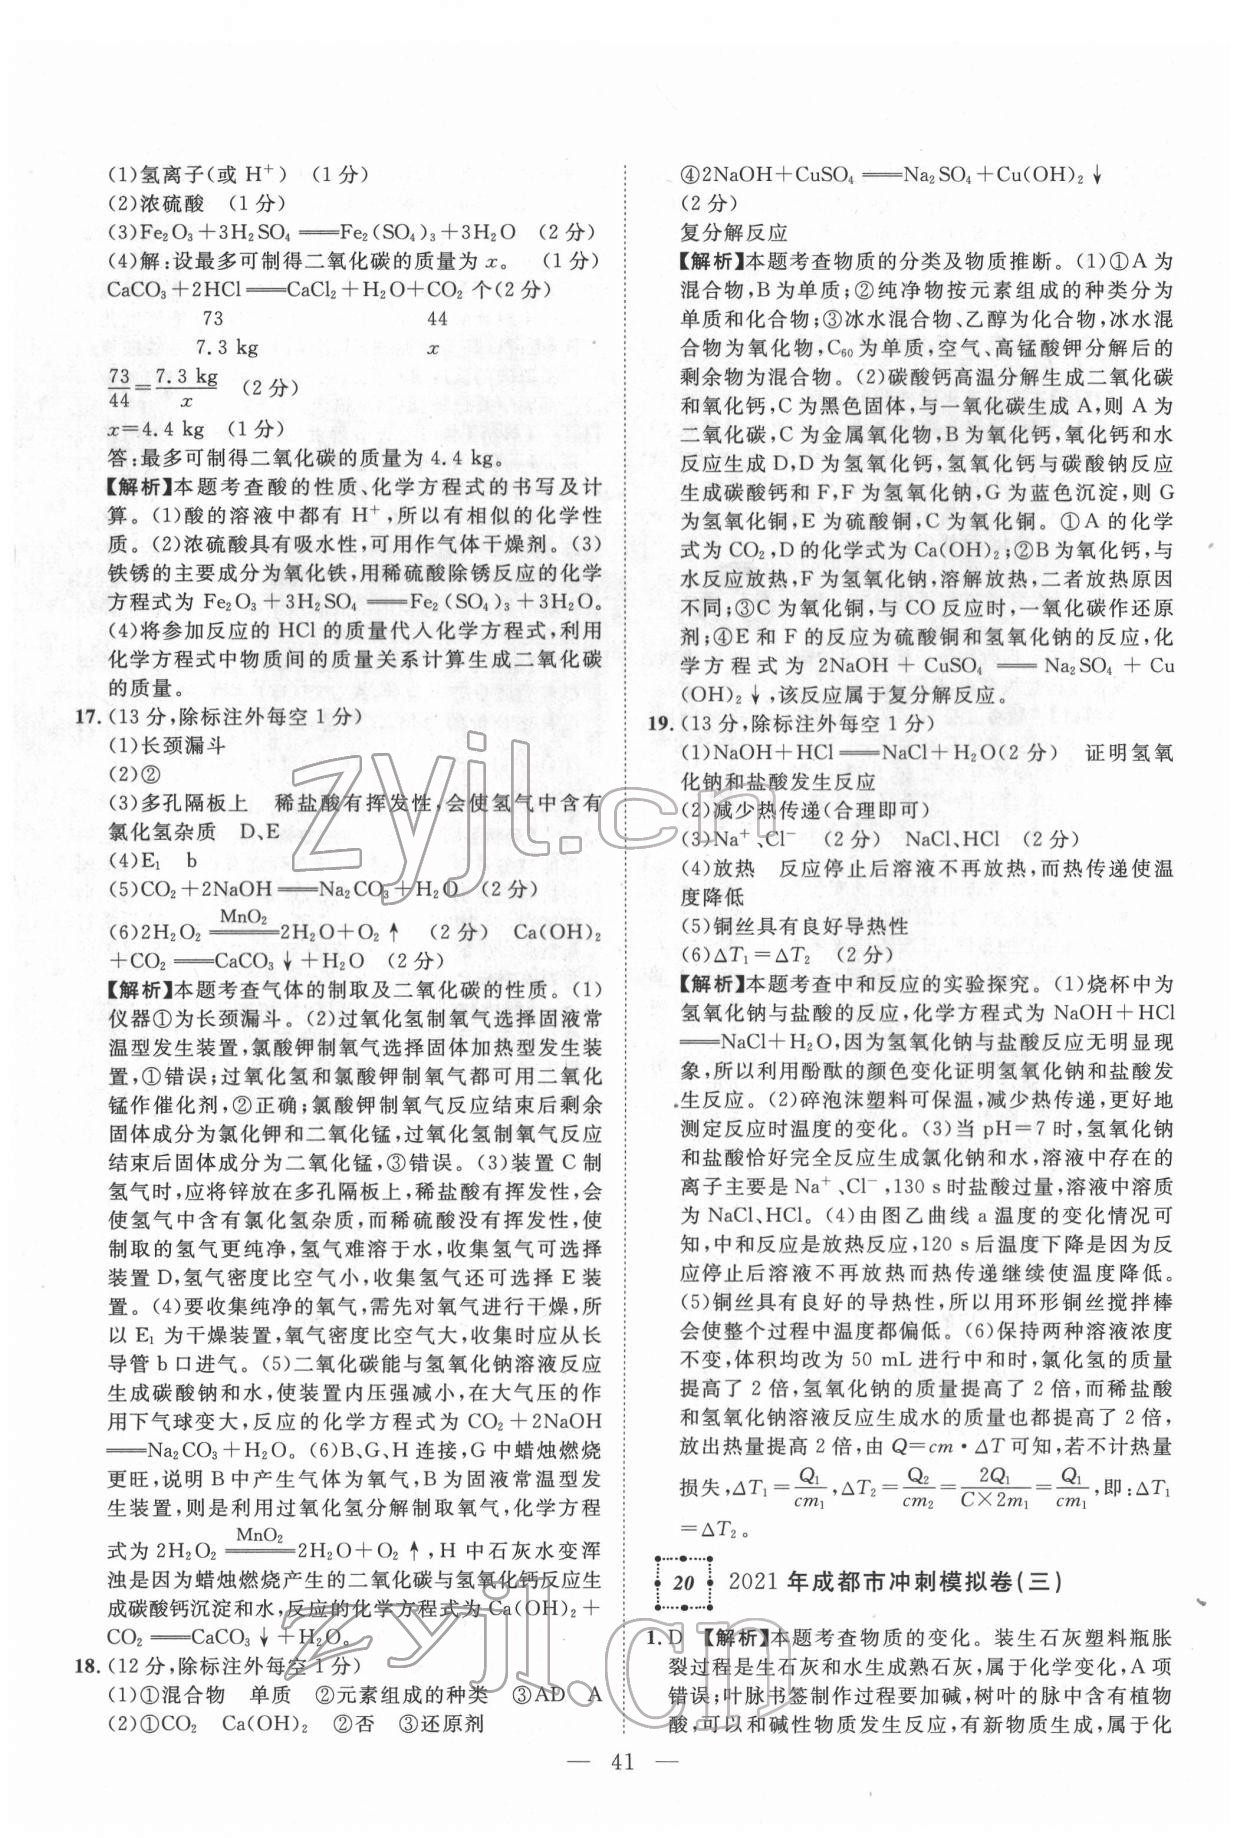 (1)氢离子(或 H⁺) (1 分)
(2)浓硫酸 (1 分)
(3)Fe₂O₃+3H₂SO₄══Fe₂(SO₄)₃+3H₂O (2 分)
(4)解:设最多可制得二氧化碳的质量为 x。 (1 分)
CaCO₃+2HCl══CaCl₂+H₂O+CO₂ 个(2 分)
73 44
7.3 kg x
73/44=7.3 kg/x (2 分)
x=4.4 kg (1 分)
答:最多可制得二氧化碳的质量为 4.4 kg。
【解析】本题考查酸的性质、化学方程式的书写及计
算。(1)酸的溶液中都有 H⁺,所以有相似的化学性
质。(2)浓硫酸具有吸水性,可用作气体干燥剂。(3)
铁锈的主要成分为氧化铁,用稀硫酸除锈反应的化学
方程式为 Fe₂O₃+3H₂SO₄══Fe₂(SO₄)₃+3H₂O。
(4)将参加反应的 HCl 的质量代人化学方程式,利用
化学方程式中物质间的质量关系计算生成二氧化碳
的质量。
17.(13 分,除标注外每空 1 分)
(1)长颈漏斗
(2)②
(3)多孔隔板上 稀盐酸有挥发性,会使氢气中含有
氯化氢杂质 D、E
(4)E₁ b
(5)CO₂+2NaOH══Na₂CO₃+H₂O (2 分)
(6)2H₂O₂ ══MnO₂══ 2H₂O+O₂↑ (2 分) Ca(OH)₂
+CO₂══CaCO₃↓+H₂O (2 分)
【解析】本题考查气体的制取及二氧化碳的性质。(1)
仪器①为长颈漏斗。(2)过氧化氢制氧气选择固液常
温型发生装置,氯酸钾制氧气选择固体加热型发生装
置,①错误;过氧化氢和氯酸钾制氧气都可用二氧化
锰作催化剂,②正确;氯酸钾制氧气反应结束后剩余
固体成分为氯化钾和二氧化锰,过氧化氢制氧气反应
结束后固体成分为二氧化锰,③错误。(3)装置 C 制
氢气时,应将锌放在多孔隔板上,稀盐酸有挥发性,会
使氢气中含有氯化氢杂质,而稀硫酸没有挥发性,使
制取的氢气更纯净,氢气难溶于水,收集氢气可选择
装置 D,氢气密度比空气小,收集氢气还可选择 E 装
置。(4)要收集纯净的氧气,需先对氧气进行干燥,所
以 E₁ 为干燥装置,氧气密度比空气大,收集时应从长
导管 b 口进气。(5)二氧化碳能与氢氧化钠溶液反应
生成碳酸钠和水,使装置内压强减小,在大气压的作
用下气球变大,反应的化学方程式为 CO₂+2NaOH
══Na₂CO₃+H₂O。(6)B、G、H 连接,G 中蜡烛燃烧
更旺,说明 B 中产生气体为氧气,B 为固液常温型发
生装置,则是利用过氧化氢分解制取氧气,化学方程
式为 2H₂O₂ ══MnO₂══ 2H₂O+O₂↑,H 中石灰水变浑
浊是因为蜡烛燃烧产生的二氧化碳与氢氧化钙反应生
成碳酸钙沉淀和水,反应的化学方程式为Ca(OH)₂+
CO₂══CaCO₃↓+H₂O。
18.(12 分,除标注外每空 1 分)
(1)①混合物 单质 ②元素组成的种类 ③AD A
(2)①CO₂ Ca(OH)₂ ②否 ③还原剂
④2NaOH+CuSO₄══Na₂SO₄+Cu(OH)₂↓
(2 分)
复分解反应
【解析】本题考查物质的分类及物质推断。(1)①A 为
混合物,B 为单质;②纯净物按元素组成的种类分为
单质和化合物;③冰水混合物、乙醇为化合物,冰水混
合物为氧化物,C₆₀为单质,空气、高锰酸钾分解后的
剩余物为混合物。(2)碳酸钙高温分解生成二氧化碳
和氧化钙,C 为黑色固体,与一氧化碳生成 A,则 A 为
二氧化碳,C 为金属氧化物,B 为氧化钙,氧化钙和水
反应生成 D,D 为氢氧化钙,氢氧化钙与碳酸钠反应
生成碳酸钙和 F,F 为氢氧化钠,G 为蓝色沉淀,则 G
为氢氧化铜,E 为硫酸铜,C 为氧化铜。①A 的化学
式为 CO₂,D 的化学式为 Ca(OH)₂;②B 为氧化钙,与
水反应放热,F 为氢氧化钠,溶解放热,二者放热原因
不同;③C 为氧化铜,与 CO 反应时,一氧化碳作还原
剂;④E 和 F 的反应为硫酸铜和氢氧化钠的反应,化
学方程式为 2NaOH + CuSO₄ ══ Na₂SO₄ + Cu
(OH)₂↓,该反应属于复分解反应。
19.(13 分,除标注外每空 1 分)
(1)NaOH+HCl══NaCl+H₂O(2 分) 证明氢氧
化钠和盐酸发生反应
(2)减少热传递(合理即可)
(3)Na⁺、Cl⁻ (2 分) NaCl、HCl (2 分)
(4)放热 反应停止后溶液不再放热,而热传递使温
度降低
(5)铜丝具有良好导热性
(6)△T₁=△T₂ (2 分)
【解析】本题考查中和反应的实验探究。(1)烧杯中为
氢氧化钠与盐酸的反应,化学方程式为 NaOH+HCl
══NaCl+H₂O,因为氢氧化钠与盐酸反应无明显现
象,所以利用酚酞的颜色变化证明氢氧化钠和盐酸发
生反应。(2)碎泡沫塑料可保温,减少热传递,更好地
测定反应时温度的变化。(3)当 pH=7 时,氢氧化钠
和盐酸恰好完全反应生成氯化钠和水,溶液中存在的
离子主要是 Na⁺、Cl⁻,130 s 时盐酸过量,溶液中溶质
为 NaCl、HCl。(4)由图乙曲线 a 温度的变化情况可
知,中和反应是放热反应,120 s 后温度下降是因为反
应停止后溶液不再放热而热传递继续使温度降低。
(5)铜丝具有良好的导热性,所以用环形铜丝搅拌棒
会使整个过程中温度都偏低。(6)保持两种溶液浓度
不变,体积均改为 50 mL 进行中和时,氯化氢的质量
提高了 2 倍,氢氧化钠的质量提高了 2 倍,而稀盐酸
和氢氧化钠溶液反应生成水的质量也都提高了 2 倍,
放出热量提高 2 倍,由 Q=cm·△T 可知,若不计热量
损失,△T₁=Q₁/cm₁,△T₂=Q₂/cm₂=2Q₁/C×2m₁=Q₁/cm₁,即:△T₁
=△T₂。
20 2021 年成都市冲刺模拟卷(三)
1. D 【解析】本题考查物质的变化。装生石灰塑料瓶胀
裂过程是生石灰和水生成熟石灰,属于化学变化,A 项
错误;叶脉书签制作过程要加碱,树叶的脉中含有植物
酸,可以和碱性物质发生反应,有新物质生成,属于化
— 41 —
zyjl.cn
zyjl.cn